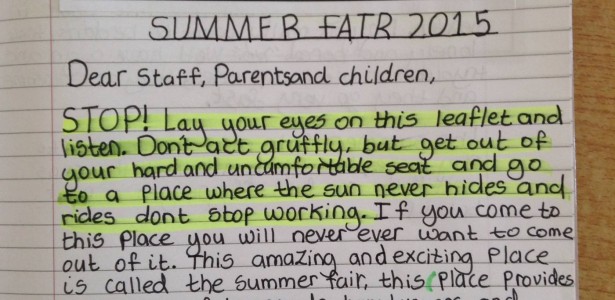 SUMMER FAIR 2015
Dear Staff, Parentsand children,
STOP! Lay your eyes on this leaflet and
listen. Don't act gruffly, but get out of
your hard and uncomfortable seat and go
to a place where the sun never hides and
rides dont stop working. If you come to
this place you will never ever want to come
out of it. This amazing and exciting place
is called the summer fair, this (place provides